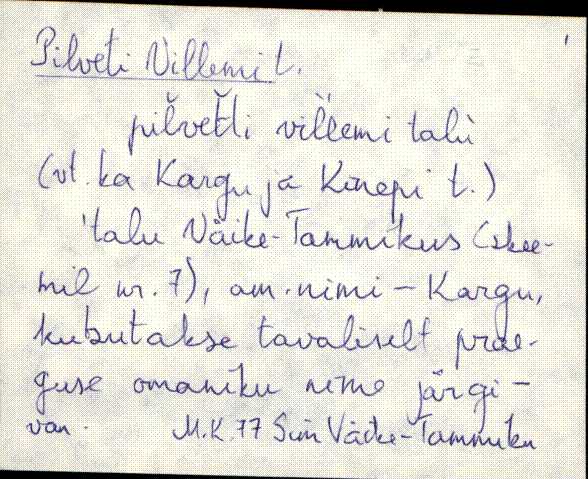 Pilveti Villemi t.
pilvet̆ti vil̆lemi talù
(vt. ka Kargu ja Kinepi t.)
'talu Väike-Tammikus (skee-
mil nr. 7), am. nimi - Kargu,
kutsutakse tavaliselt prae-
guse omaniku nime järgi -
van. M.K. 77 Sim Väike-Tammiku